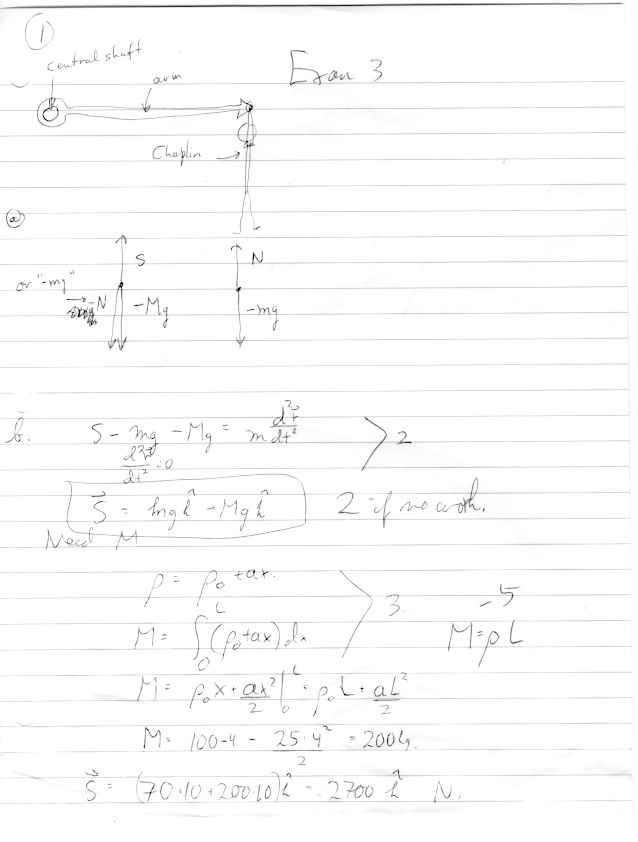 ①
Exam 3
central shaft
arm
Chaplin
ⓐ
S N
or "-mg" -N -Mg -mg
b. S - mg - Mg = m d²r⃗/dt² > 2
d²r⃗/dt² = 0
S⃗ = mg k̂ - Mg k̂ 2 if no work.
Need M
ρ = ρ₀ + ax.
M = ∫₀ᴸ (ρ₀ + ax) dx > 3 -5
M = ρL
M = ρ₀x + ax²/2 |₀ᴸ = ρ₀L + aL²/2
M = 100·4 - 25·4²/2 = 200
S⃗ = (70·10 + 200·10) k̂ = 2700 k̂ N.